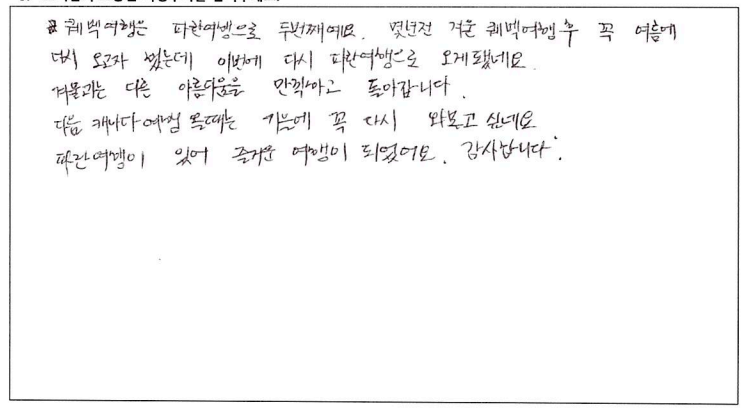 퀘벡여행은 파란여행으로 두번째예요. 몇년전 겨울 퀘벡여행 후 꼭 여름에
다시 오고자 했는데 이번에 다시 파란여행으로 오게됐네요.
겨울과는 다른 아름다움을 만끽하고 돌아갑니다.
다음 캐나다여행 올때는 가을에 꼭 다시 와보고 싶네요
파란여행이 있어 즐거운 여행이 되었어요. 감사합니다.